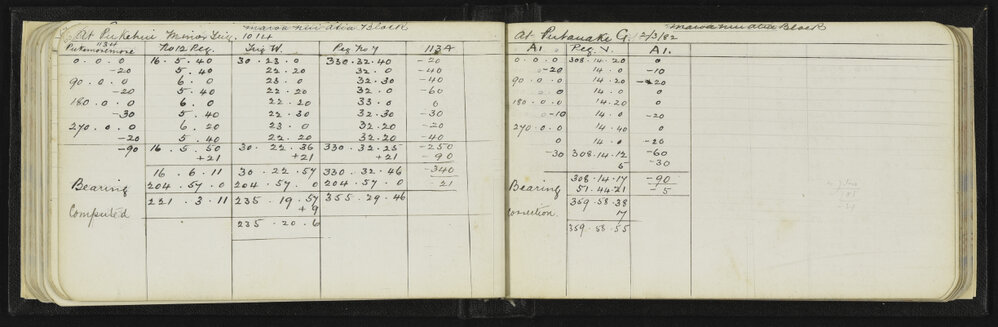 Block
At Pukehui Minor Trig. 1014
1134
Pukemoremore No 12 Peg. Trig W. Peg No 7 113A
0 . 0 . 0 16 . 5 . 40 30 . 23 . 0 330 . 32 . 40 -20
-20 5 . 40 22 . 20 32 . 0 -40
90 . 0 . 0 6 . 0 23 . 0 32 . 30 -40
-20 5 . 40 22 . 20 32 . 0 -60
180 . 0 . 0 6 . 0 22 . 20 33 . 0 0
-30 5 . 40 22 . 30 32 . 30 -30
270 . 0 . 0 6 . 20 23 . 0 32 . 20 -20
-20 5 . 40 22 . 20 32 . 20 -40
-90 16 . 5 . 50 30 . 22 . 36 330 . 32 . 25 -250
+21 +21 +21 -90
16 . 6 . 11 30 . 22 . 57 330 . 32 . 46 -340
Bearing 204 . 57 . 0 204 . 57 . 0 204 . 57 . 0 -21
Computed 221 . 3 . 11 235 . 19 . 57 355 . 29 . 46
+9
235 . 20 . 6
Block
At Putauaki G. 2/3/82
A1. Peg. V. A1.
0 . 0 . 0 308 . 14 . 20 0
-20 14 . 0 -10
90 . 0 . 0 14 . 20 -20
0 14 . 0 0
180 . 0 . 0 14 . 20 0
-10 14 . 0 -20
270 . 0 . 0 14 . 40 0
0 14 . 0 -20
-30 308 . 14 . 12 -60
5 -30
308 . 14 . 17 -90
Bearing 51 . 44 . 21 -5
359 . 58 . 38
Correction 17
359 . 58 . 55